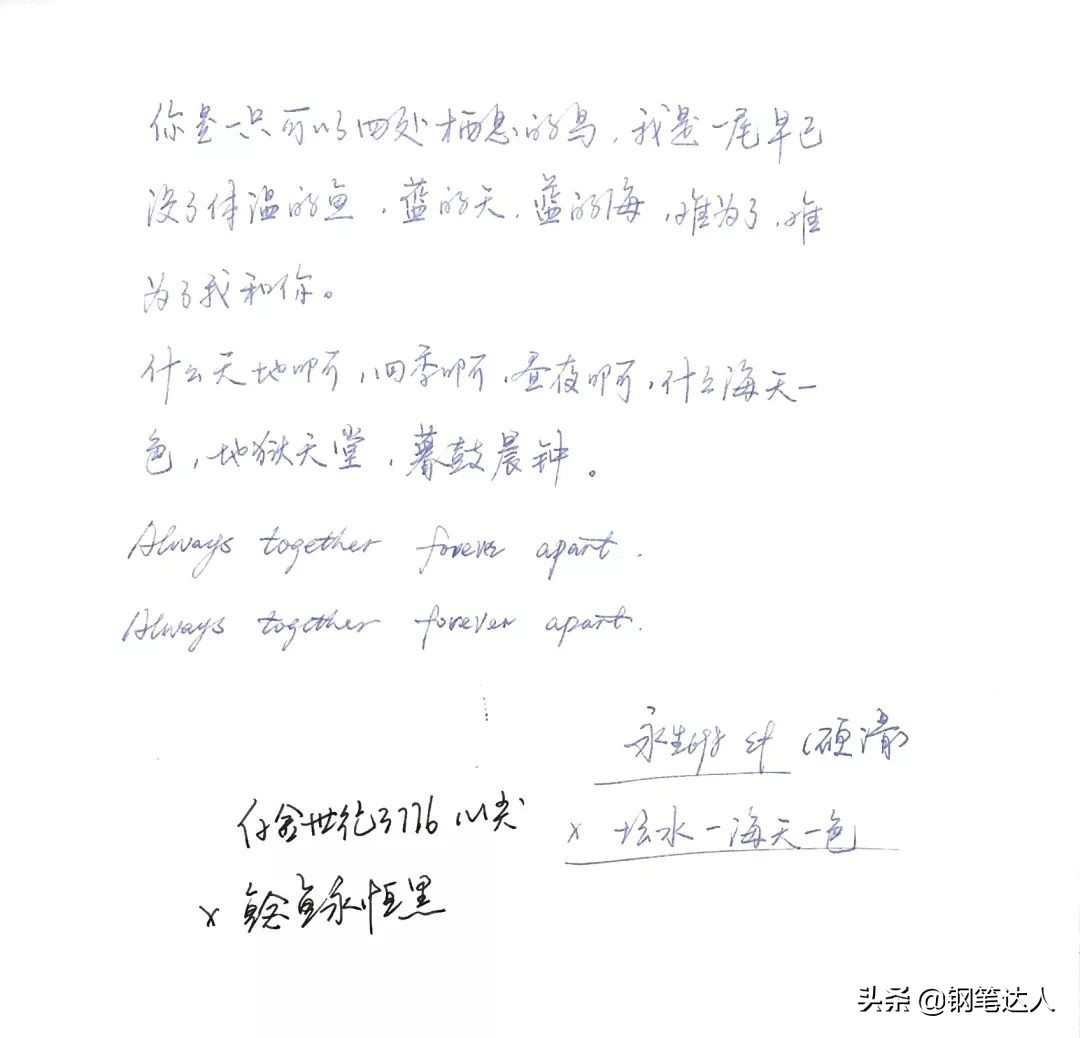 你是一只可以四处栖息的鸟，我是一尾早已
没了体温的鱼，蓝的天，蓝的海，难为了，难
为了我和你。
什么天地啊，四季啊，昼夜啊，什么海天一
色，地狱天堂，暮鼓晨钟。
Always together forever apart.
Always together forever apart.
永生
× 坛水一海天一色
仿金世纪3776 尖
× 鲶鱼永恒黑
头条 @钢笔达人